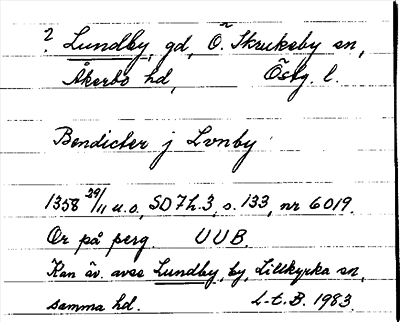 ? Lundby, gd, Ö. Skrukeby sn,
Åkerbo hd, Östg. l.
Bendicter j Lvnby
1358 29/11 u.o., SD 7h.3, s. 133, nr 6019.
Or på perg. UUB.
Kan äv. avse Lundby, by, Lillkyrka sn,
samma hd. L-t.B. 1983.